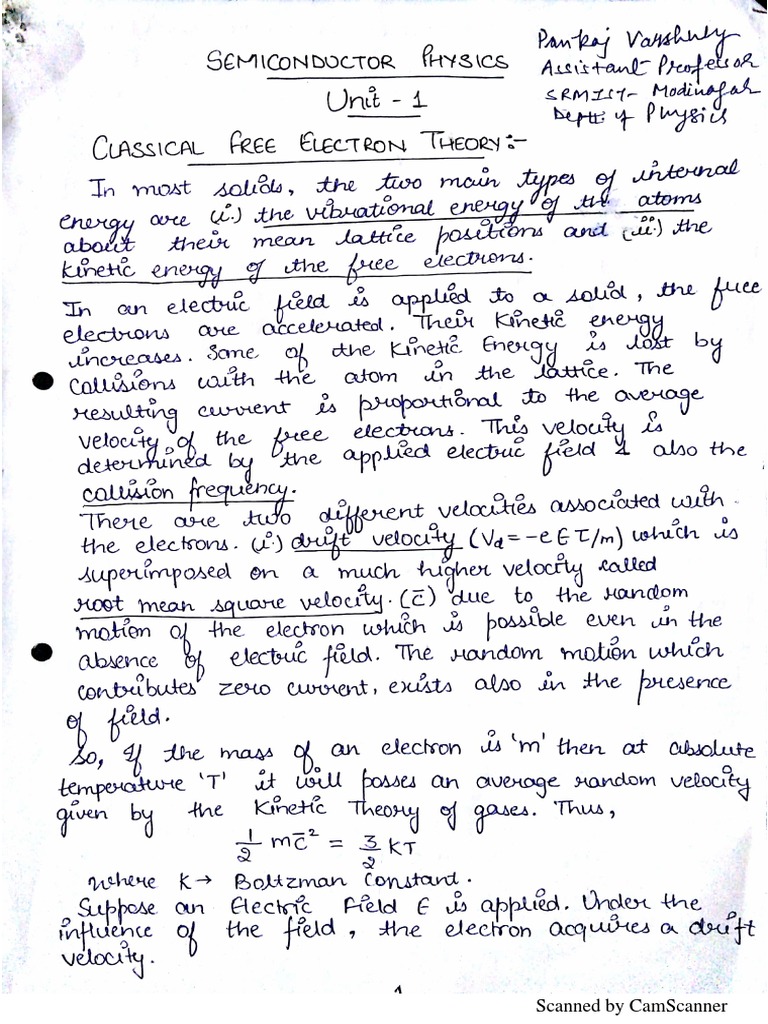 SEMICONDUCTOR PHYSICS
Unit - 1
Pankaj Varshney
Assistant Professor
SRMIST- Modinagar
Deptt. of Physics
CLASSICAL FREE ELECTRON THEORY:-
In most solids, the two main types of internal
energy are (i.) the vibrational energy of the atoms
about their mean lattice positions and (ii.) the
kinetic energy of the free electrons.
In an electric field is applied to a solid, the free
electrons are accelerated. Their Kinetic energy
increases. Some of the Kinetic Energy is lost by
collisions with the atom in the lattice. The
resulting current is proportional to the average
velocity of the free electrons. This velocity is
determined by the applied electric field & also the
collision frequency.
There are two different velocities associated with
the electrons. (i.) drift velocity (Vd = -eEτ/m) which is
superimposed on a much higher velocity called
root mean square velocity. (c̄) due to the random
motion of the electron which is possible even in the
absence of electric field. The random motion which
contributes zero current, exists also in the presence
of field.
So, If the mass of an electron is 'm' then at absolute
temperature 'T' it will posses an average random velocity
given by the Kinetic Theory of gases. Thus,
1/2 mc̄² = 3/2 KT
where K → Boltzman Constant.
Suppose an Electric Field E is applied. Under the
influence of the field, the electron acquires a drift
velocity.
1
Scanned by CamScanner